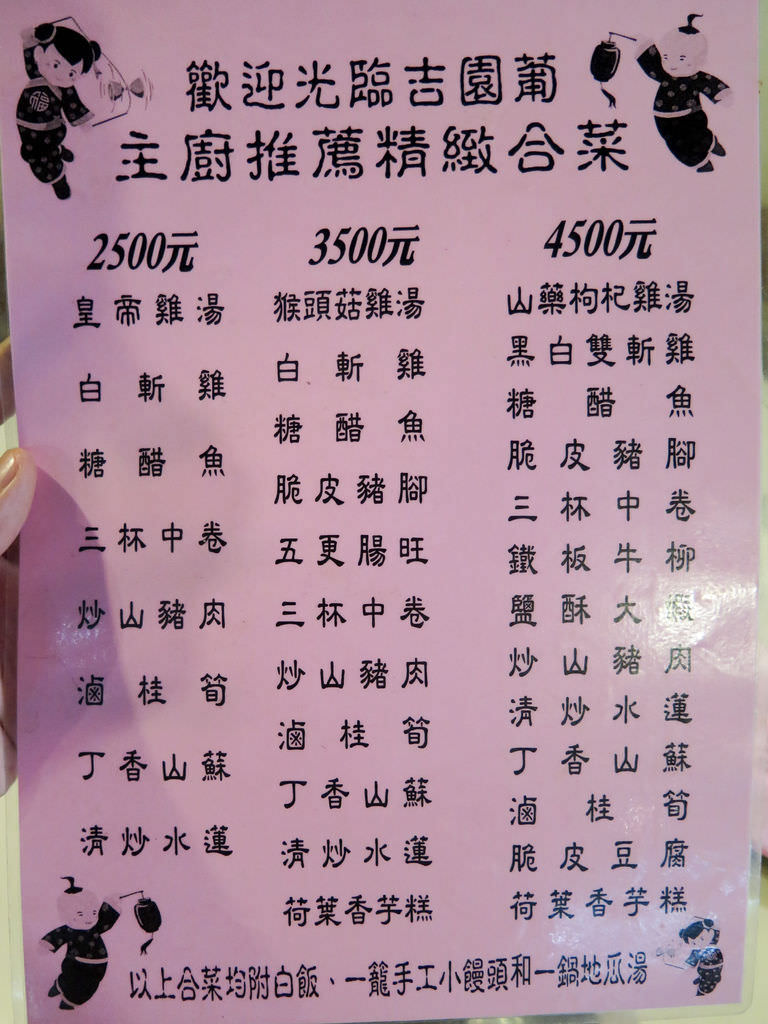 歡迎光臨吉園葡
主廚推薦精緻合菜
2500元
皇帝雞湯
白斬雞
糖醋魚
三杯中卷
炒山豬肉
滷桂筍
丁香山蘇
清炒水蓮
3500元
猴頭菇雞湯
白斬雞
糖醋魚
脆皮豬腳
五更腸旺
三杯中卷
炒山豬肉
滷桂筍
丁香山蘇
清炒水蓮
荷葉香芋糕
4500元
山藥枸杞雞湯
黑白雙斬雞
糖醋魚
脆皮豬腳
三杯中卷
鐵板牛柳
鹽酥大蝦
炒山豬肉
清炒水蓮
丁香山蘇
滷桂筍
脆皮豆腐
荷葉香芋糕
以上合菜均附白飯、一籠手工小饅頭和一鍋地瓜湯
福